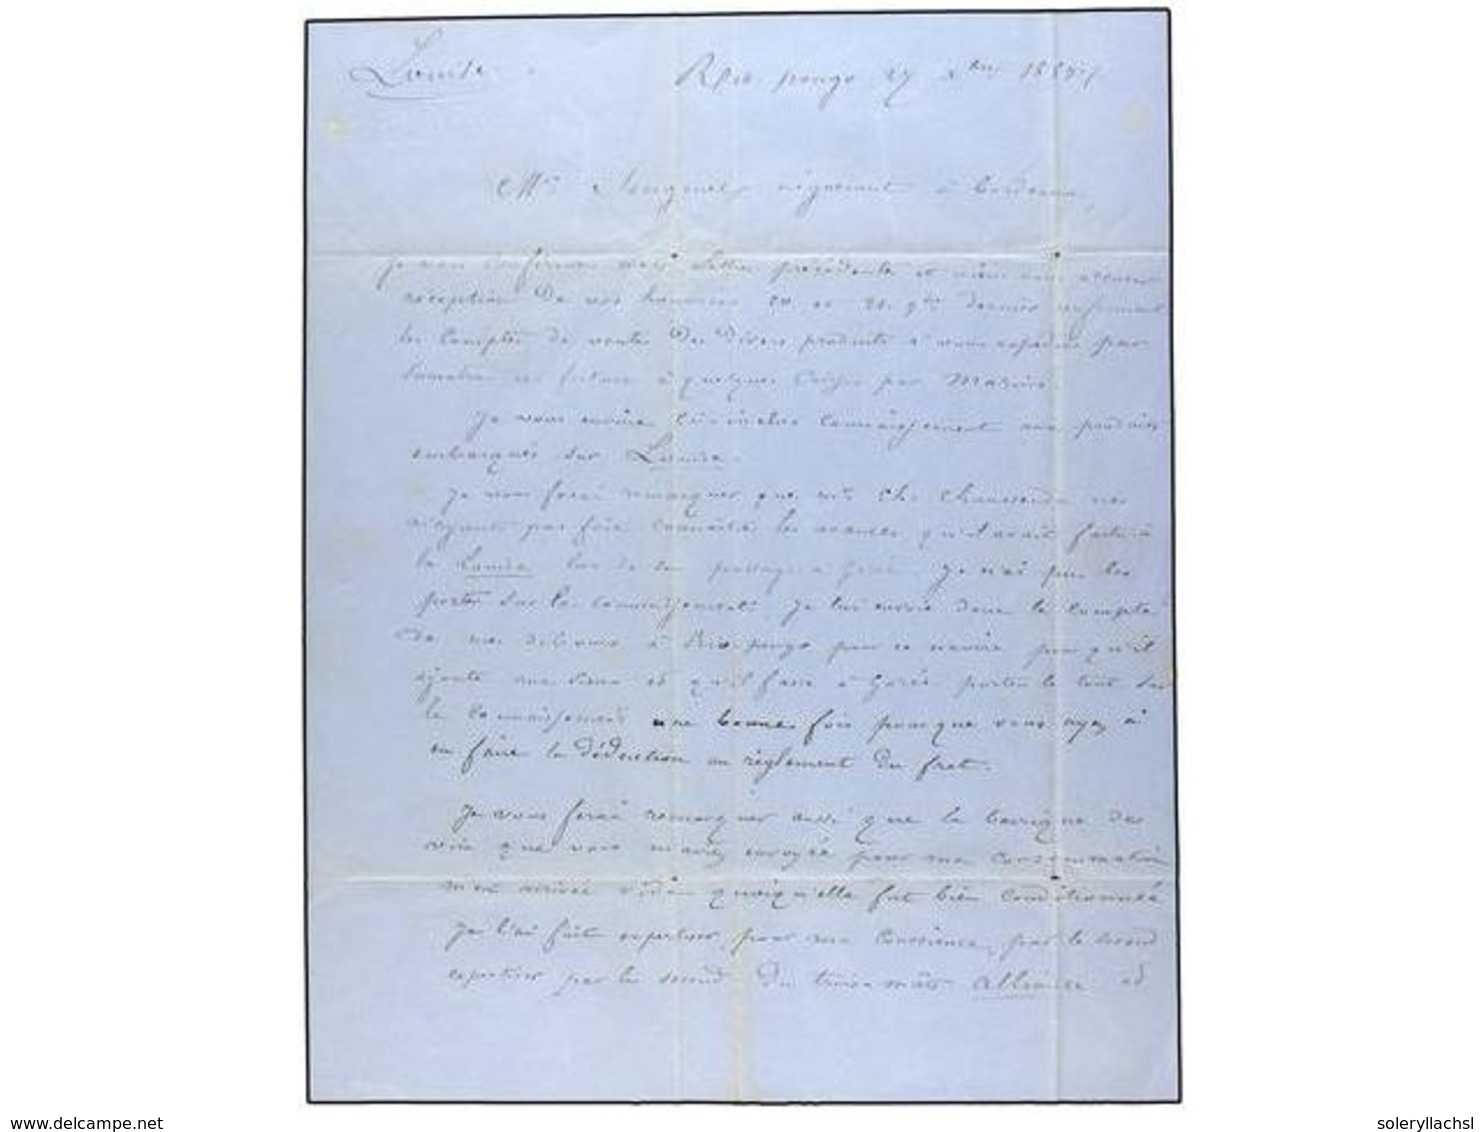 Louise
Rio-pongo 27 Xbre 1857
Mr négociant à Bordeaux,
Je vous confirme ma lettre précédente et viens vous accuser
réception de vos honorées 20. et 20. 9bre dernier renfermant
les comptes de ventes des divers produits à vous expédiés par
par Marine.
Je vous envoie ci-inclus connaissement aux produits
embarqués sur Louise.
Je vous ferai remarquer que Mr Ch.
pas fait connaître les avances qu'il avait faites à
la Louise lors de son passage à Gorée. Je n'ai pu les
porter sur les connaissements. Je lui envoie donc le compte
de mes débours à Rio-pongo pour ce navire pour qu'il
ajoute aux siens et qu'il fasse à Gorée porter le tout sur
le connaissement une bonne fois pourque vous ayez à
en faire la déduction au règlement du fret.
Je vous ferai remarquer aussi que la barrique de
vin que vous m'avez envoyée pour ma consommation
m'est arrivée vide quoiqu'elle fut bien conditionnée
Je l'ai fait expertiser, pour ma conscience, par le second
expertiser par le second du trois-mâts Alliance et
www.delcampe.net
soleryllachsl